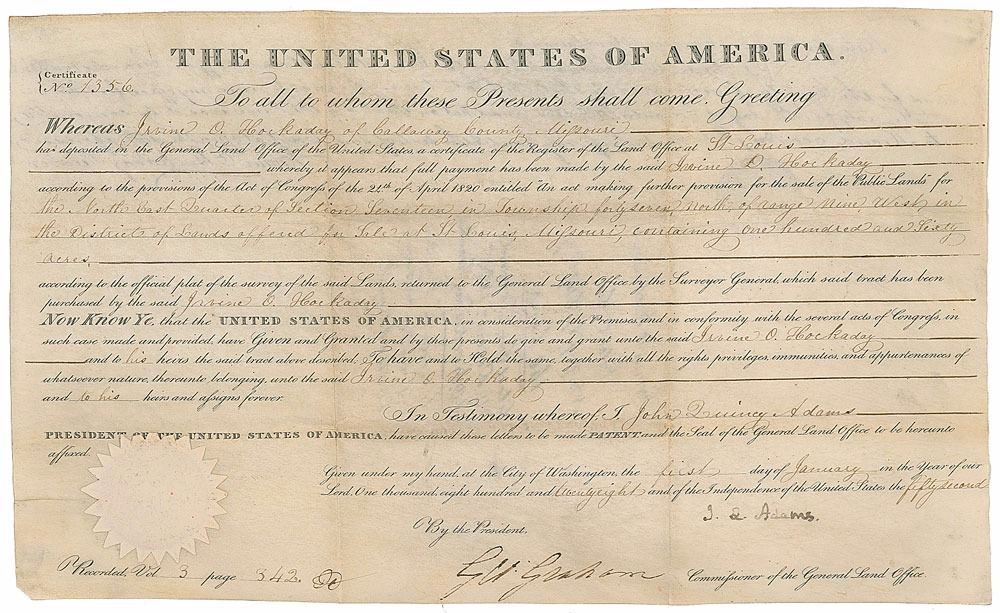 THE UNITED STATES OF AMERICA.
Certificate
No. 1356
To all to whom these Presents shall come, Greeting
Whereas Irvine O. Hockaday of Callaway County, Missouri
has deposited in the General Land Office of the United States, a certificate of the Register of the Land Office at St Louis
whereby it appears that full payment has been made by the said Irvine O. Hockaday
according to the provisions of the Act of Congress of the 24th of April 1820 entitled "An act making further provision for the sale of the Public Lands" for
the North East Quarter of Section Seventeen in Township forty seven, North, of range Nine, West in
the District of Lands offered for Sale at St Louis, Missouri, containing one hundred and Sixty
acres,
according to the official plat of the survey of the said Lands, returned to the General Land Office by the Surveyor General, which said tract has been
purchased by the said Irvine O. Hockaday
Now Know Ye, that the UNITED STATES OF AMERICA, in consideration of the Premises, and in conformity with the several acts of Congress, in
such case made and provided, have Given and Granted and by these presents do give and grant unto the said Irvine O. Hockaday
and to his heirs the said tract above described, To have and to Hold the same, together with all the rights privileges, immunities, and appurtenances of
whatsoever nature, thereunto belonging, unto the said Irvine O. Hockaday,
and to his heirs and assigns forever.
In Testimony whereof, I, John Quincy Adams
PRESIDENT OF THE UNITED STATES OF AMERICA, have caused these letters to be made PATENT, and the Seal of the General Land Office to be hereunto
affixed.
Given under my hand, at the City of Washington, the first day of January in the Year of our
Lord, One thousand, eight hundred and twenty eight and of the Independence of the United States the fifty second
J. Q. Adams.
By the President,
Recorded, Vol 3 page 342 G W Graham Commissioner of the General Land Office.